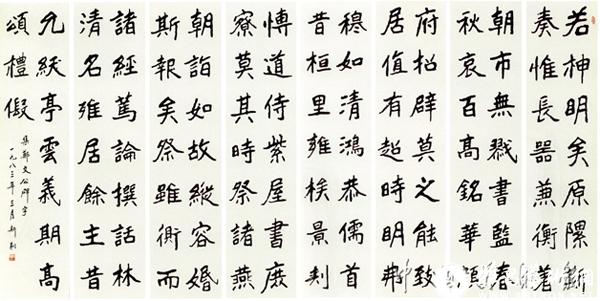 若神明矣原隰斷
奏惟長器蕭衡
朝市無戮書監春
秋哀百高銘華顯
府招辟莫之能致
居值有超時明弗
穆如清鴻恭儒首
昔桓里雍秩景
慱道侍紫屋書庶
寮莫其時祭諸燕
朝詣如故縱容婚
斯報矣祭雖衡而
諸經篤論撰話林
清名雅居餘主昔
允紱亭雲義期高
頌禮假
集鄭文公碑字
一九八三年三月